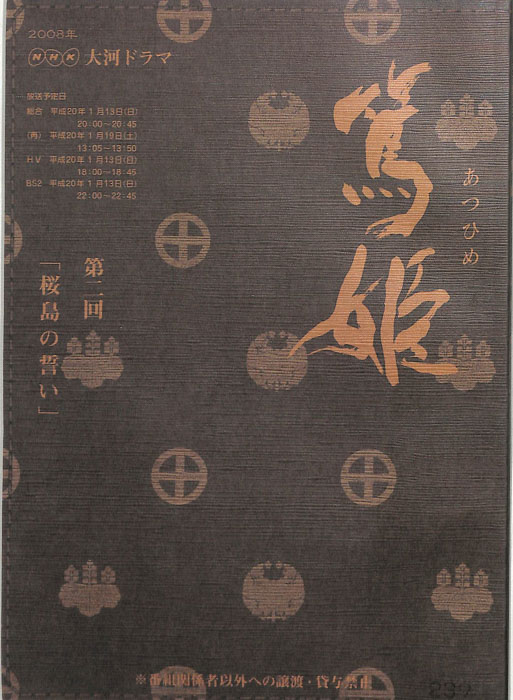 2008年
NHK 大河ドラマ
放送予定日
総合 平成20年1月13日(日)
20:00〜20:45
(再) 平成20年1月19日(土)
13:05〜13:50
HV 平成20年1月13日(日)
18:00〜18:45
BS2 平成20年1月13日(日)
22:00〜22:45
篤姫
あつひめ
第二回
「桜島の誓い」
※番組関係者以外への譲渡・貸与禁止